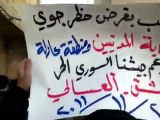 ب بفرض حظر جوي
ية المدنيين ومنطقة عازلة
عم جيشنا السوري الحر
شق العسالي
٢٠١١